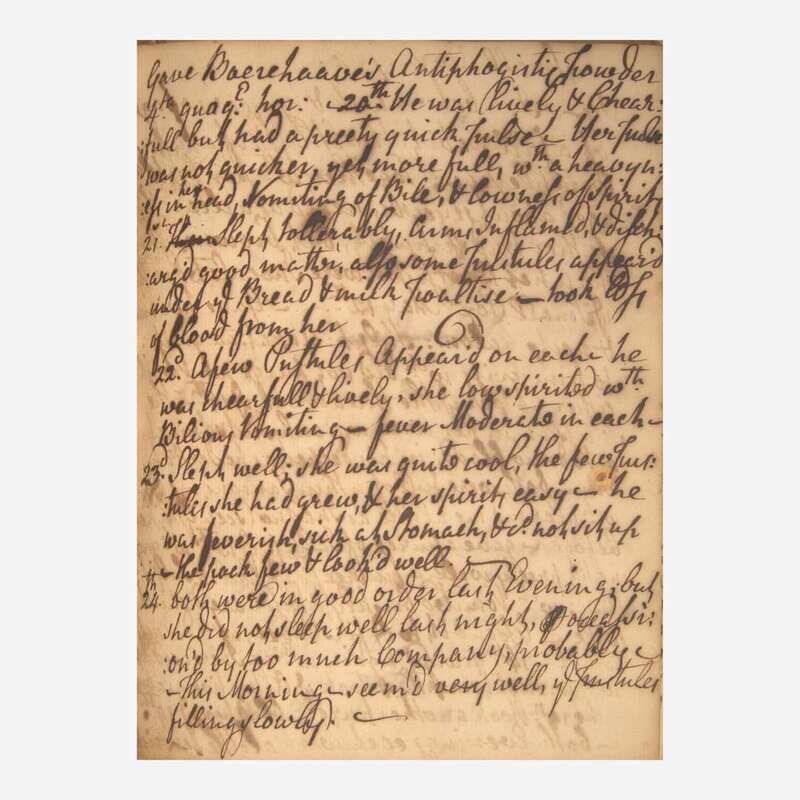 Gave Boerehaave's Antiphogistic Powder
4th quaq: hor: 20th He was lively & Chear:
:full but had a preety quick Pulse — Her Pulse
was not quicker, yet more full, wth a heavyn:
:ess in her head, Vomiting of Bile, & lowness of Spirits
21st Slept tollerably, Arms Inflamed, & disch:
:arg'd good matter, also some Pustules appear'd
under ye Bread & milk Poultise — took
of blood from her
22d A few Pustules Appear'd on each — he
was chearfull & lively, she low spirited wth
Bilious Vomiting — fever Moderate in each —
23d Slept well; she was quite cool, the few Pus:
:tules she had grew, & her spirits easy — he
was feverish, sick at Stomach, & cd not sit up
— the pock few & look'd well. —
24th both were in good order last Evening; but
she did not sleep well last night, occassi:
:on'd by too much Company, probably —
— This Morning — seem'd very well, ye Pustules
filling slowly. —